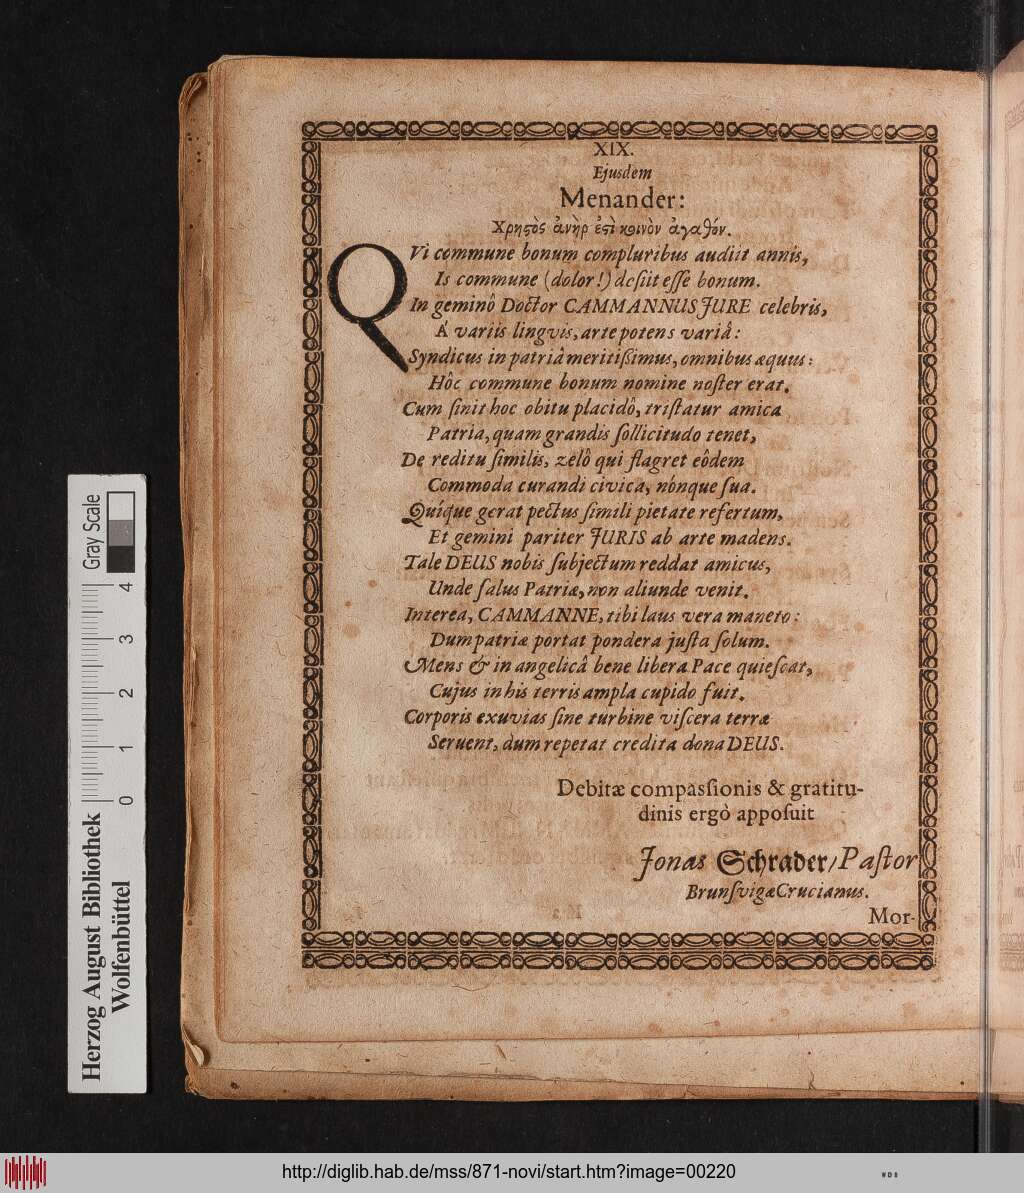 XIX.
Ejusdem
Menander:
Χρηϛὸς ἀνὴρ ἐϛὶ κοινὸν ἀγαθόν.
QVi commune bonum compluribus audiit annis,
Is commune (dolor!) deſiit eſſe bonum.
In geminô Doctor CAMMANNUS JURE celebris,
Á variis lingvis, arte potens variâ:
Syndicus in patriâ meritißimus, omnibus æquus:
Hôc commune bonum nomine noſter erat.
Cum ſinit hoc obitu placidô, triſtatur amica
Patria, quam grandis ſollicitudo tenet,
De reditu ſimilis, zelô qui flagret eôdem
Commoda curandi civica, nónque ſua.
Quique gerat pectus ſimili pietate refertum,
Et gemini pariter JURIS ab arte madens.
Tale DEUS nobis ſubjectum reddat amicus,
Unde ſalus Patriæ, non aliunde venit.
Interea, CAMMANNE, tibi laus vera maneto:
Dum patriæ portat pondera juſta ſolum.
Mens & in angelicâ bene libera Pace quieſcat,
Cujus in his terris ampla cupido fuit.
Corporis exuvias ſine turbine viſcera terræ
Servent, dum repetat credita dona DEUS.
Debitæ compasſionis & gratitu-
dinis ergò appoſuit
Jonas Schrader/ Paſtor
Brunſvigæ Crucianus.
Mor-
Herzog August Bibliothek
Wolfenbüttel
0 1 2 3 4
Gray Scale
http://diglib.hab.de/mss/871-novi/start.htm?image=00220